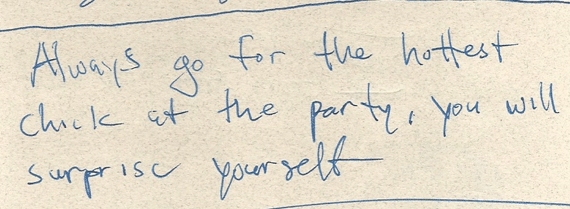 Always go for the hottest
chick at the party, you will
surprise yourself